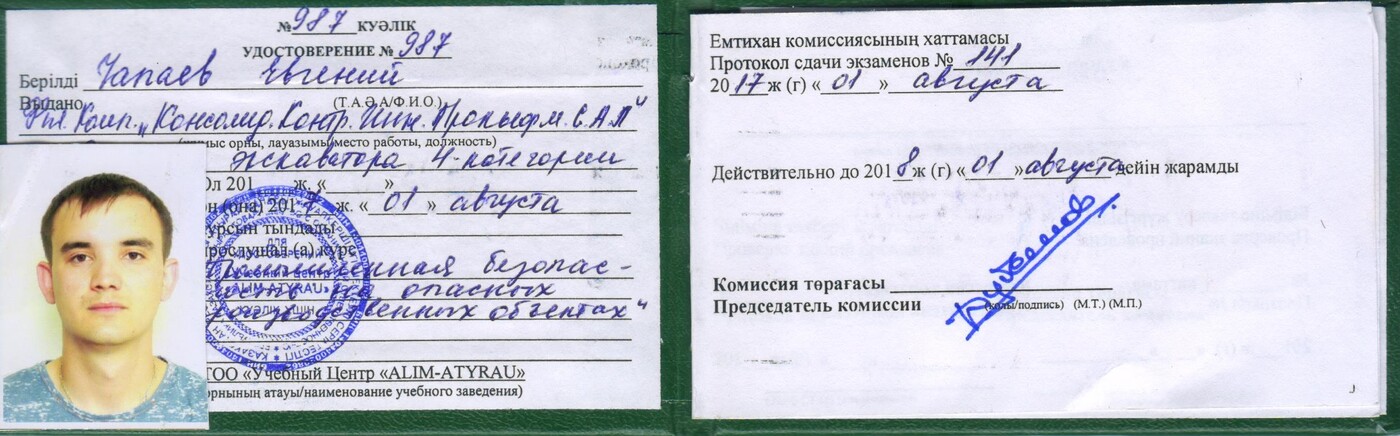 № 987 КУӘЛІК
УДОСТОВЕРЕНИЕ № 987
Берілді Чапаев Евгений
Выдано (Т.А.Ә.А/Ф.И.О.)
Фил. Комп. „Консолид. Контр. Инж. Прокьюрм. С.А.Л"
(жұмыс орны, лауазымы/место работы, должность)
экскаватора 4-категории
Ол 201 ж. « »
он (она) 2017 ж. «01» августа
курсын тындады
прослушал (а) курс
Промышленная безопас-
ность на опасных
производственных объектах"
ТОО «Учебный Центр «ALIM-ATYRAU»
орнының атауы/наименование учебного заведения)
ALIM-ATYRAU
Емтихан комиссиясының хаттамасы
Протокол сдачи экзаменов № 141
2017 ж (г) « 01 » августа
Действительно до 2018 ж (г) «01» августа дейін жарамды
Комиссия төрағасы
Председатель комиссии (қолы/подпись) (М.Т.) (М.П.)